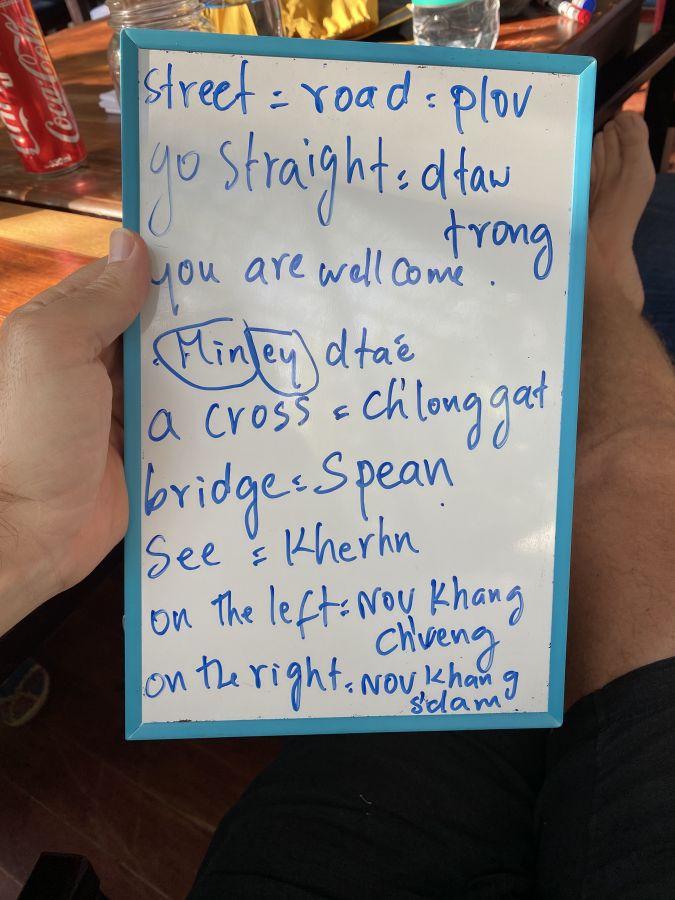 Coca-Cola
street = road = plov
go straight = dtaw
trong
you are wellcome .
Minley dtaé
a cross = Ch'long gat
bridge = Spean
See = Kherhn
on the left = Nov Khang
Ch'veng
on the right = Nov Khang
s'dam